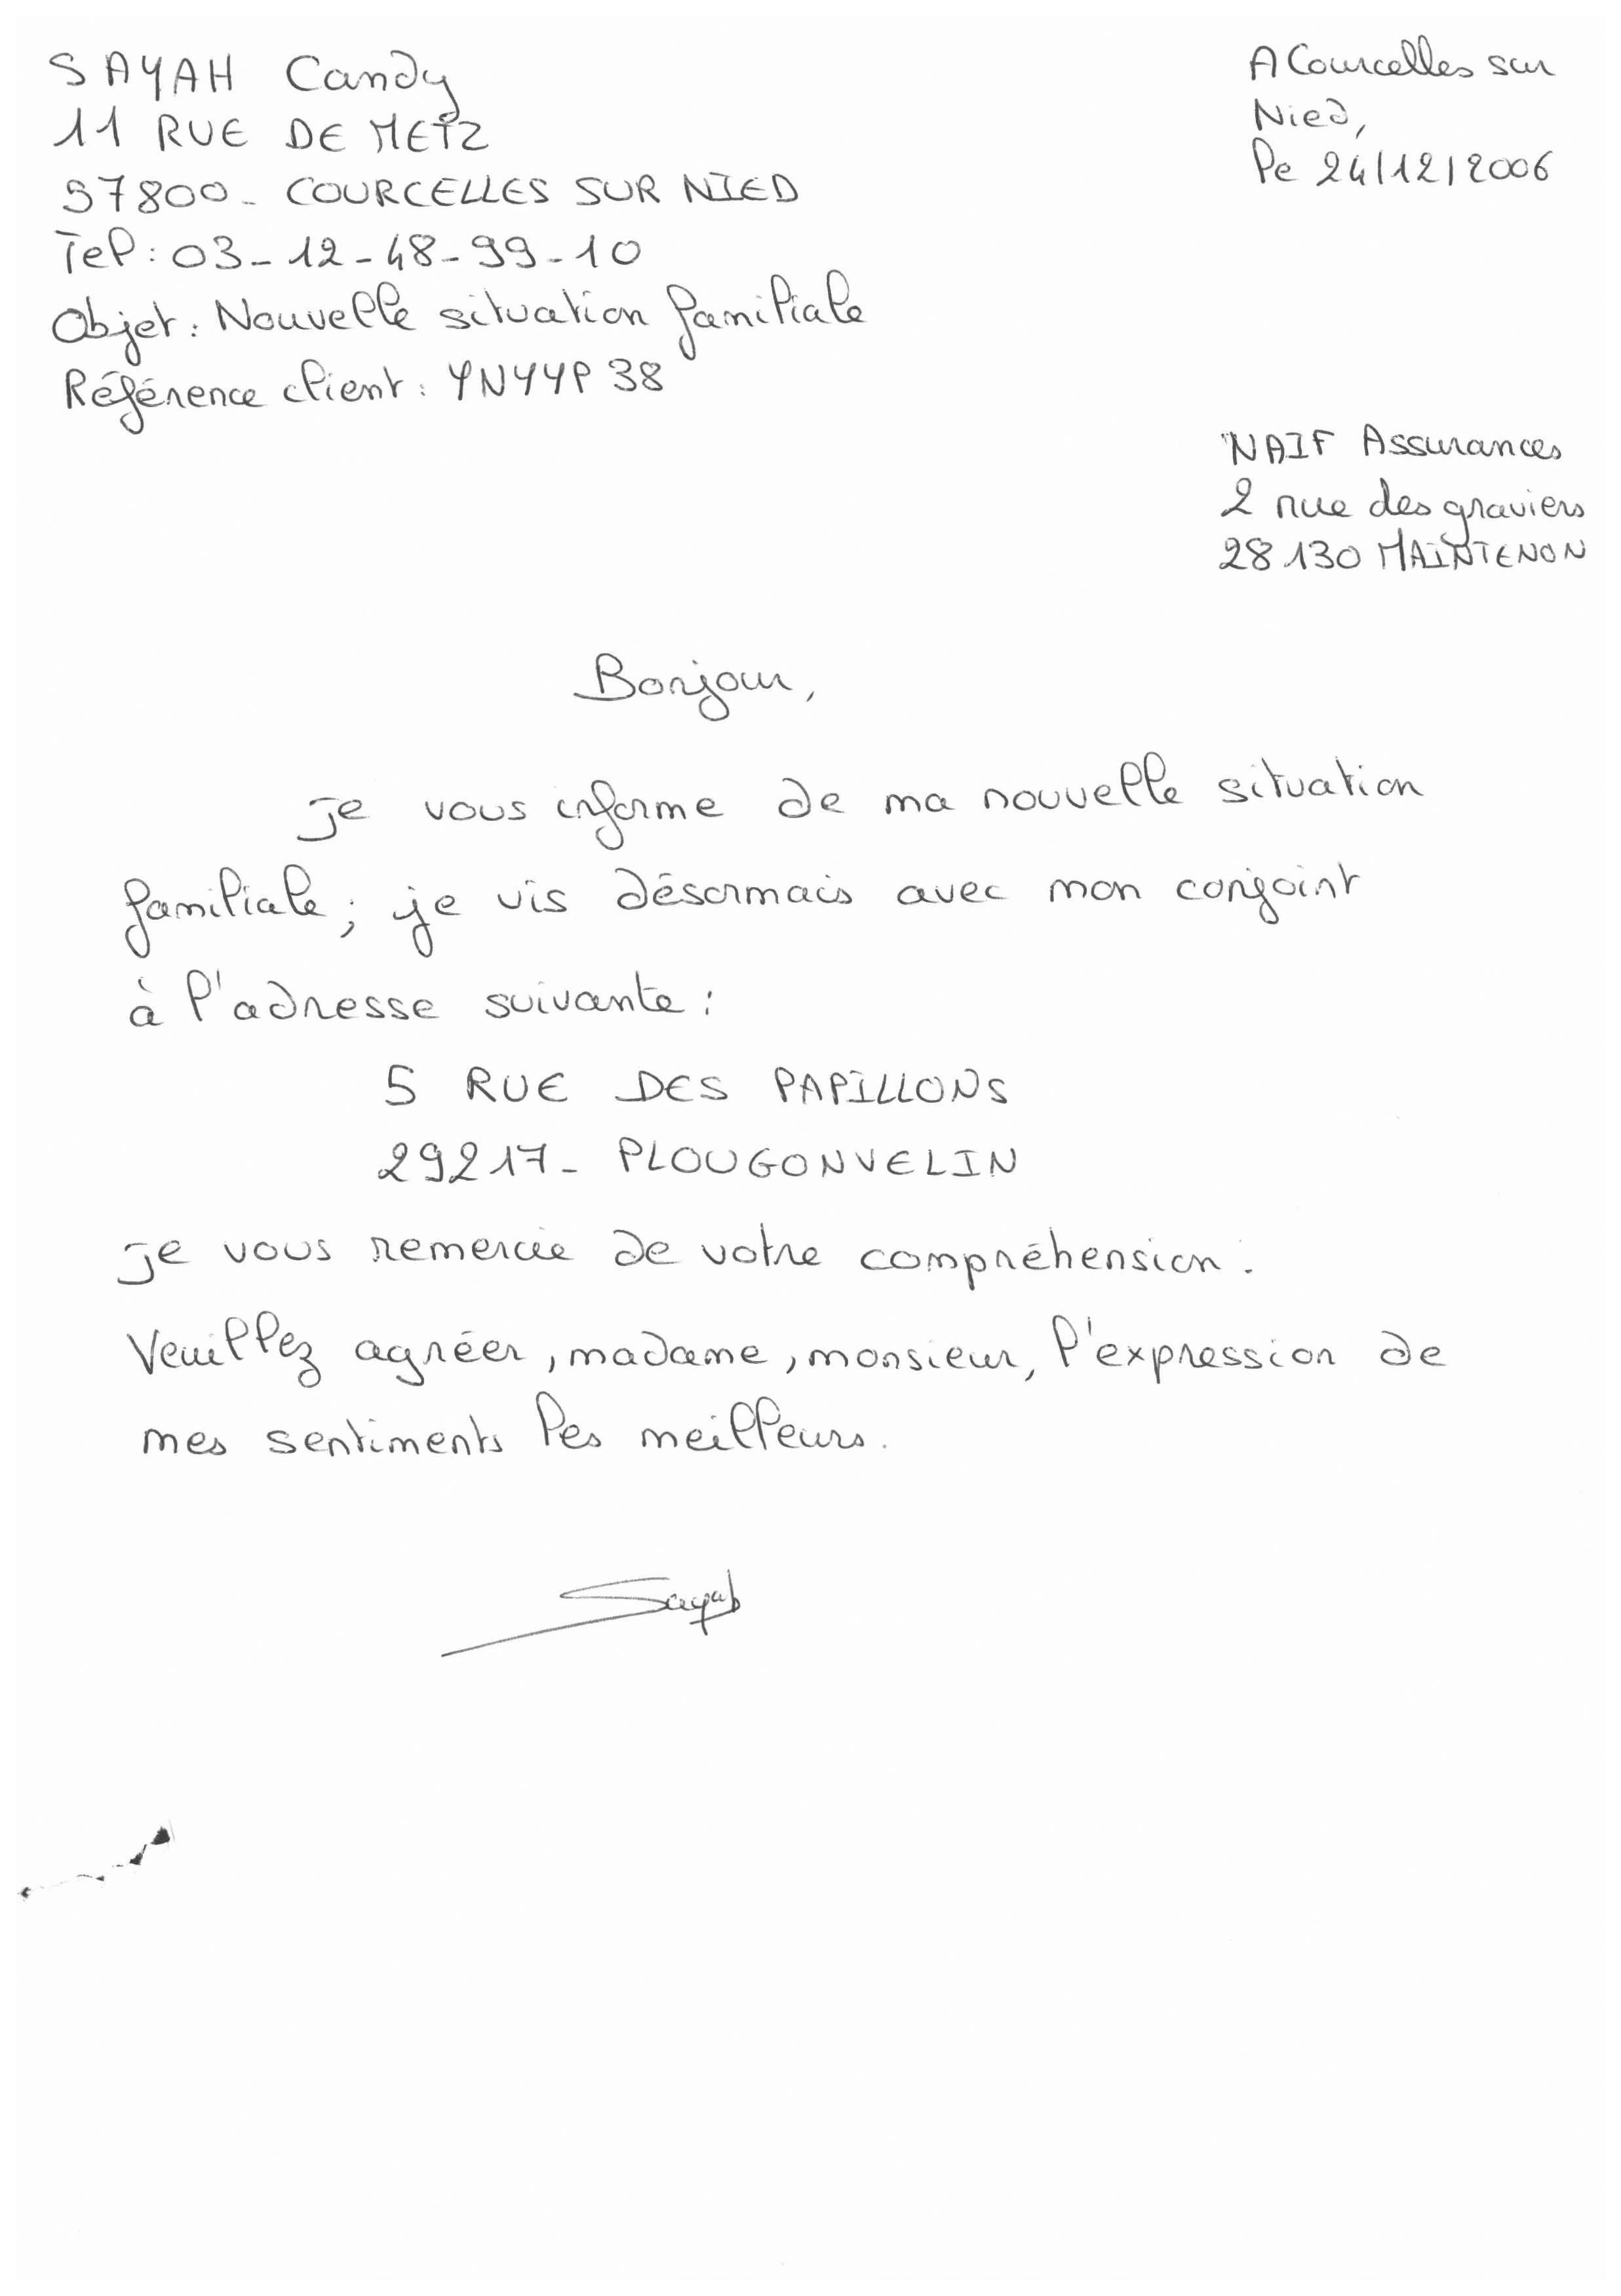 SAYAH Candy
11 RUE DE METZ
57800 - COURCELLES SUR NIED
Tel : 03 - 12 - 48 - 99 - 10
Objet : Nouvelle situation familiale
Référence client : YNYYP38
A Courcelles sur
Nied,
le 24/12/2006
NAIF Assurances
2 rue des graviers
28130 MAINTENON
Bonjour,
je vous informe de ma nouvelle situation
familiale ; je vis désormais avec mon conjoint
à l'adresse suivante :
5 RUE DES PAPILLONS
29217 - PLOUGONVELIN
je vous remercie de votre compréhension.
Veuillez agréer, madame, monsieur, l'expression de
mes sentiments les meilleurs.
Sayah